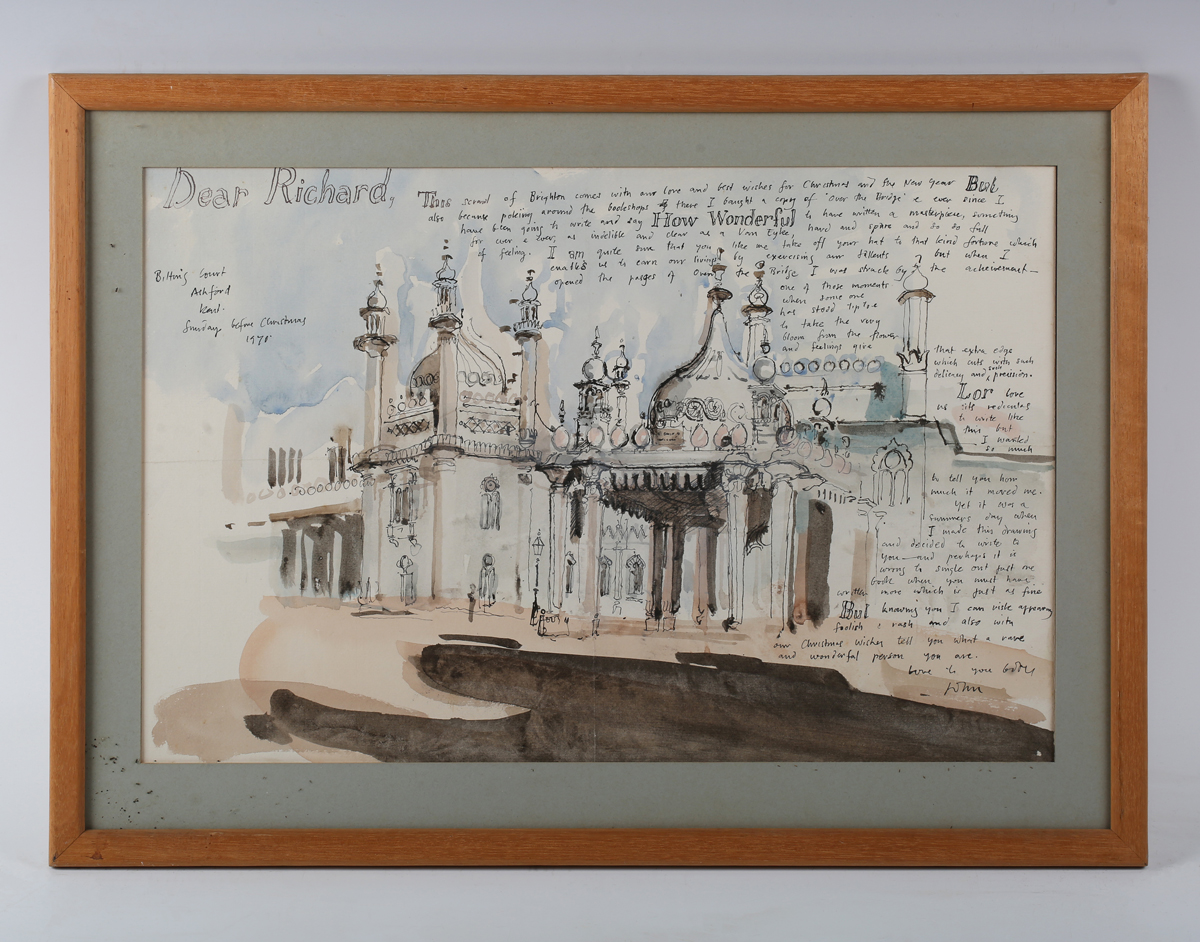 Dear Richard,
This scrawl of Brighton comes with our love and best wishes for Christmas and the New Year But
also because poking around the bookshops there I bought a copy of 'Over the Bridge' & ever since I
have been going to write and say How Wonderful to have written a masterpiece, something
for ever & ever, as indelible and clear as a Van Eyke, hard and spare and so so full
of feeling. I am quite sure that you like me take off your hat to that kind fortune which
enables us to earn our livings by exercising our talents but when I
opened the pages of Over the Bridge I was struck by the achievement —
one of those moments
when some one
has stood tiptoe
to take the very
bloom from the flower
and feelings give
Ashford
Kent.
Sunday before Christmas
that extra edge
which cuts with such
delicacy and such precision.
Lor love
us its rediculus
to write like
this but
I wanted
so much
to tell you how
much it moved me.
Yet it was a
summers day when
I made this drawing
and decided to write to
you — and perhaps it is
wrong to single out just one
book when you must have
written more which is just as fine
But knowing you I can risk appearing
foolish & rash and also with
our Christmas wishes tell you what a rare
and wonderful person you are.
Love to you both
— John